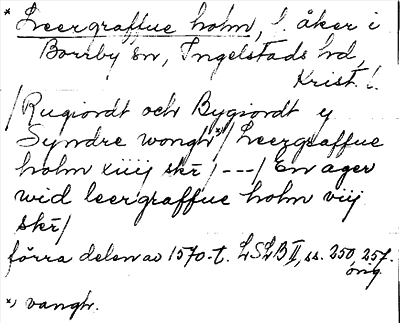 * Leergraffue holm, l. åker i
Borrby sn, Ingelstads hd,
Krist. l.
/Rugiordt och Bygiordt y
Syndre wongh*)/Leergraffue
holm xiiij skr/---/En ager
wid leergraffue holm viij
skr/
förra delen av 1570-t. LSLB II, ss. 250, 257.
orig.
*) vangh.